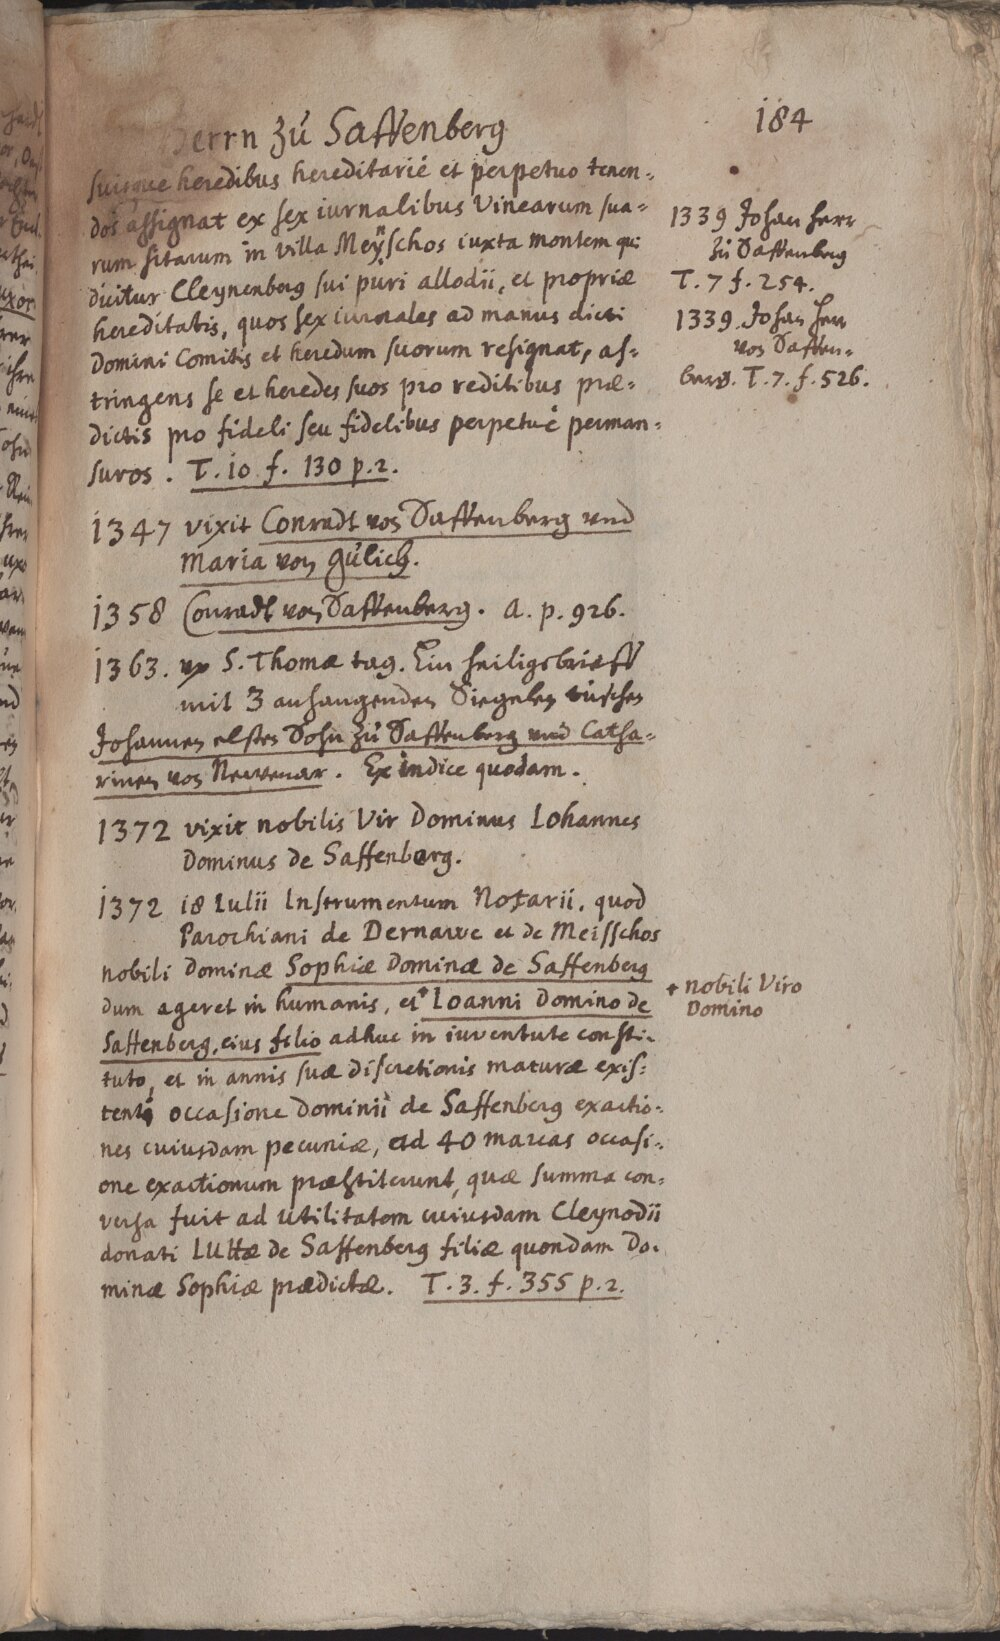 184
Herrn zu Saffenberg
suisque heredibus hereditarié et perpetuo tenen-
dos assignat ex sex iurnalibus Vinearum sua-
rum sitarum in villa Meynschos iuxta montem qui
dicitur Cleynenberg sui puri allodii, et propriæ
hereditatis, quos sex iurnales ad manus dicti
Domini Comitis et heredum suorum resignat, as-
tringens se et heredes suos pro reditibus præ-
dictis pro fideli seu fidelibus perpetué perman-
suros. T. 10 f. 130 p. 2.
1347 vixit Conradt von Saffenberg und
Maria von Gülich.
1358 Conradt von Saffenberg. A. p. 926.
1363. up S. Thomæ tag. Ein heiligsbrieff
mit 3 anhangenden Siegelen tüschen
Johannen elsten Sohn zu Saffenberg und Catha-
rinen von Newenar. Ex indice quodam.
1372 vixit nobilis Vir Dominus Iohannes
Dominus de Saffenberg.
1372 18 Iulii Instrumentum Notarii, quod
Parochiani de Dernawe et de Meisschos
nobili Dominæ Sophiæ Dominæ de Saffenberg
dum ageret in humanis, et + Ioanni Domino de
Saffenberg, eius filio adhuc in iuventute consti-
tuto, et in annis suæ discretionis maturæ exis-
tenti occasione Dominii de Saffenberg exactio-
nes cuiusdam pecuniæ, ad 40 marcas occasi-
one exactionum præstiterunt, quæ summa con-
versa fuit ad utilitatem cuiusdam Cleynodii
donati Luttæ de Saffenberg filiæ quondam Do-
minæ Sophiæ prædictæ. T. 3. f. 355 p. 2.
1339 Johan herr
zu Saffenberg
T. 7 f. 254.
1339. Johan herr
von Saffen-
berg. T. 7. f. 526.
+ nobili Viro
Domino